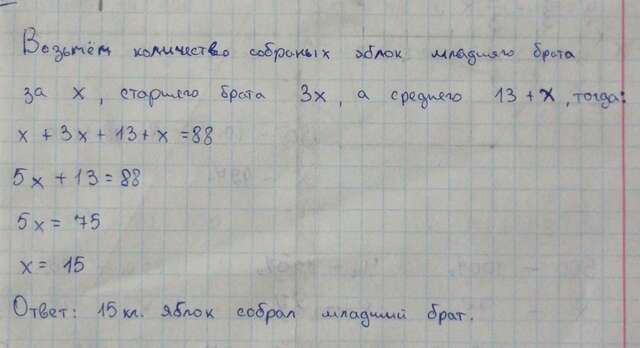 Возьтём количество собраных яблок младшего брата
за x, старшего брата 3x, а среднего 13 + x, тогда:
x + 3x + 13 + x = 88
5x + 13 = 88
5x = 75
x = 15
Ответ: 15 кг. яблок собрал младший брат.